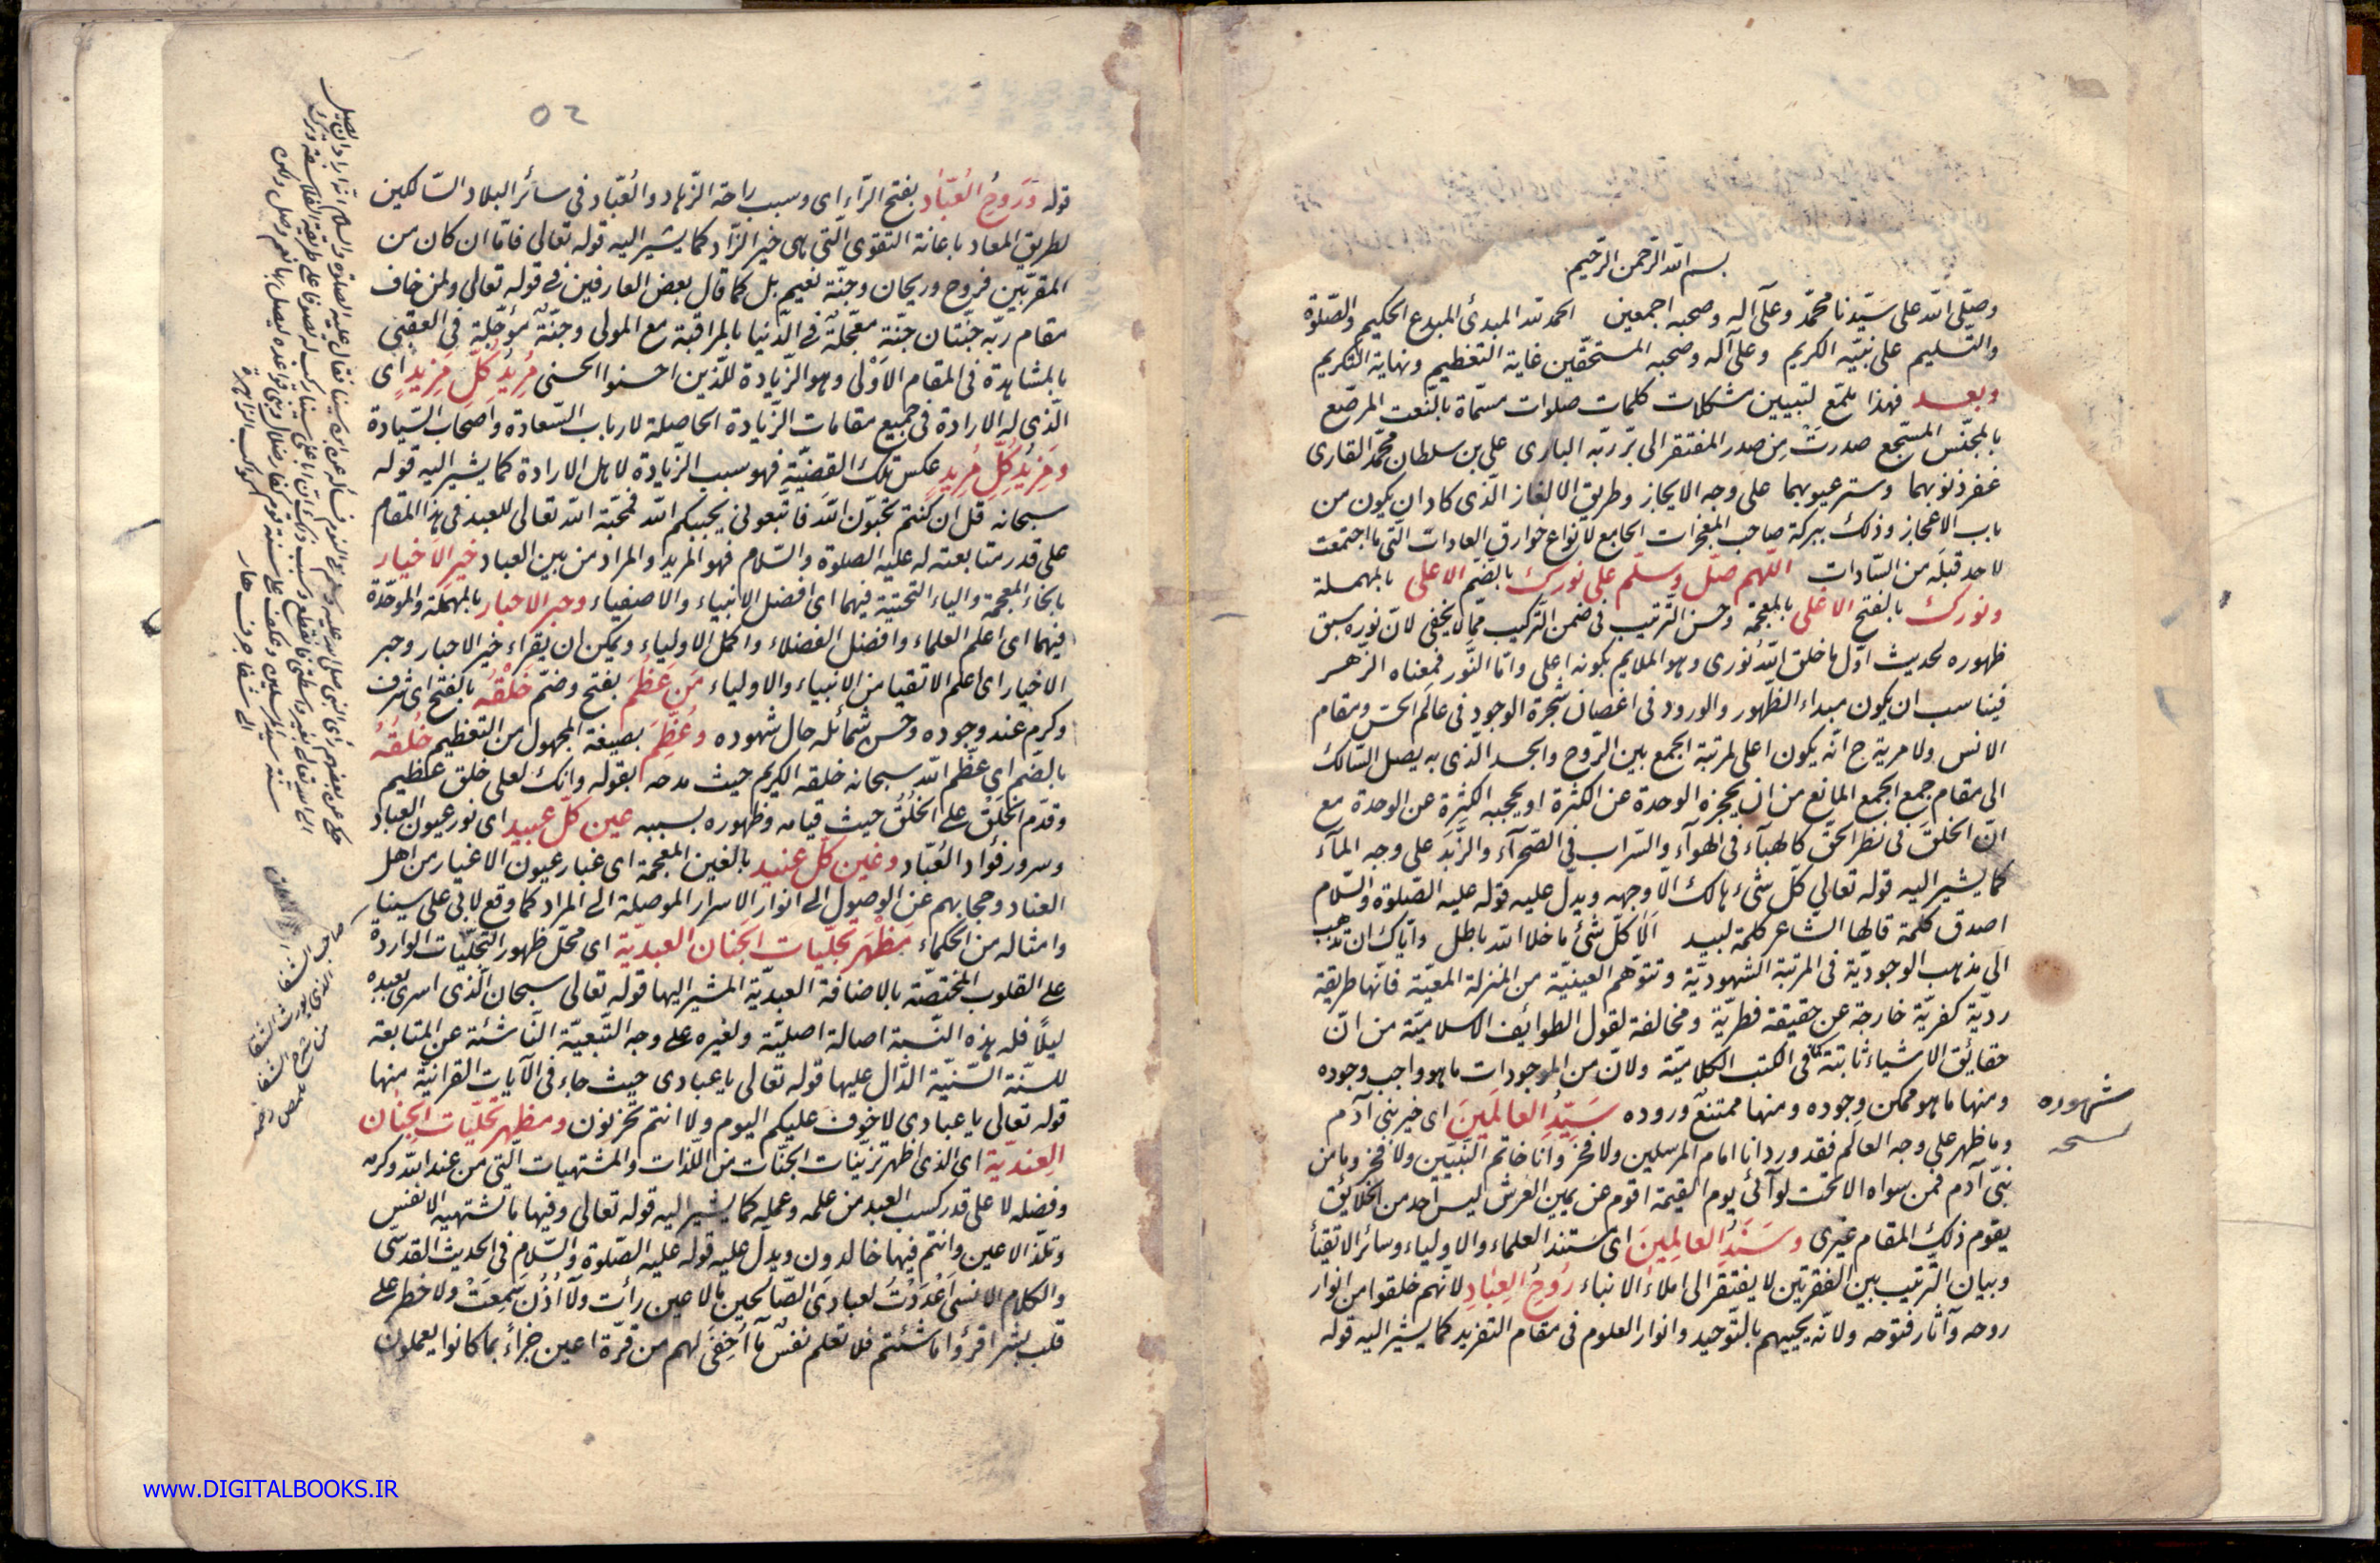 بسم الله الرحمن الرحيم
وصلّى الله على سيّدنا محمّد وعلى آله وصحبه اجمعين الحمد لله المبدئ المبدع الحكيم والصّلوة
والتسليم على نبيّه الكريم وعلى آله وصحبه المستحقّين غاية التعظيم ونهاية التكريم
وبعد فهذا ملمّع لتبيين مشكلات كلمات صلوات مسمّاة بالنّعت المرصّع
بالمجنّس المسجّع صدرت من صدر المفتقر الى برّ ربّه البارى على بن سلطان محمّد القارى
غفر ذنوبهما وستر عيوبهما على وجه الايجاز وطريق الالغاز الّذى كاد ان يكون من
باب الاعجاز وذلك ببركة صاحب المعجزات الجامع لانواع خوارق العادات الّتى ما اجتمعت
لاحد قبله من السّادات اللّهم صلّ وسلّم على نورك بالضّم الاعلى بالمهملة
ونورك بالفتح الاغلى بالمعجمة وحسن التّرتيب فى ضمن التّركيب ممّا لا يخفى لانّ نوره سبق
ظهوره لحديث اوّل ما خلق اللّه نورى وهو الملايم بكونه اعلى وامّا النَّور فمعناه الزّهر
فيناسب ان يكون مبداء الظهور والورود فى اغصان شجرة الوجود فى عالم الحسّ ومقام
الانس ولا مرية ح انّه يكون اعلى لمرتبة الجمع بين الرّوح والجسد الّذى به يصل السّالك
الى مقام جمع الجمع المانع من ان يحجزه الوحدة عن الكثرة او يحجبه الكثرة عن الوحدة مع
انّ الخلق فى نظر الحقّ كالهبآء فى الهوآء والسّراب فى الصّحرآء والزّبد على وجه المآء
كما يشير اليه قوله تعالى كلّ شىء هالك الّا وجهه ويدلّ عليه قوله عليه الصّلوة والسّلام
اصدق كلمة قالها الشاعر كلمة لبيد الا كلّ شئ ما خلا الله باطل وايّاك ان تذهب
الى مذهب الوجوديّة فى المرتبة الشهوديّة وتتوهّم العينيّة من المنزلة المعيّة فانّها طريقة
رديّة كفريّة خارجة عن حقيقة فطريّة ومخالفة لقول الطوائف الاسلاميّة من انّ
حقائق الاشياء ثابتة كما فى الكتب الكلاميّة ولانّ من الموجودات ما هو واجب وجوده
ومنها ما هو ممكن وجوده ومنها ممتنع وروده سيّد العالَمين اى خير بنى آدم
شهوده
وما ظهر على وجه العالم فقد ورد انا امام المرسلين ولا فخر وانا خاتم النّبيّين ولا فخر وما من
بنى آدم فمن سواه الا تحت لوآئى يوم القيمة اقوم عن يمين العرش ليس احد من الخلايق
يقوم ذلك المقام غيرى وسند العالِمين اى مستند العلماء والاولياء وسائر الاتقياء
وبيان التّرتيب بين الفقرتين لا يفتقر الى املاء الانباء رُوح العِباد لانّهم خلقوا من انوار
روحه وآثار فتوحه ولانّه يحييهم بالتّوحيد وانوار العلوم فى مقام التفريد كما يشير اليه قوله
٥٢
قوله ورَوح العُبّاد بفتح الرّاء اى وسبب راحة الزّهاد والعُبّاد فى سائر البلاد السّالكين
لطريق المعاد باعانة التقوى الّتى هى خير الزّاد كما يشير اليه قوله تعالى فامّا ان كان من
المقرّبين فروح وريحان وجنّة نعيم بل كما قال بعض العارفين فى قوله تعالى ولمن خاف
مقام ربّه جنّتان جنّة معجّلة فى الدّنيا بالمراقبة مع المولى وجنّة مؤجّلة فى العقبى
بالمشاهدة فى المقام الاولى وهو الزّيادة للّذين احسنوا الحسنى مُريد كلّ مَزيد اى
الّذى له الارادة فى جميع مقامات الزّيادة الحاصلة لارباب السّعادة واصحاب السّيادة
ومَزيد كلّ مُريد عكس تلك القضيّة فهو سبب الزّيادة لاهل الارادة كما يشير اليه قوله
سبحانه قل ان كنتم تحبّون اللّه فاتّبعونى يحببكم اللّه فمحبّة اللّه تعالى للعبد فى هذا المقام
على قدر متابعته له عليه الصلوة والسّلام فهو المريد والمراد من بين العباد خير الاخيار
بالخاء المعجمة والياء التحتيّة فيهما اى افضل الانبياء والاصفياء وحبر الاحبار بالمهملة والموحّدة
فيهما اى اعلم العلماء وافضل الفضلاء واكمل الاولياء ويمكن ان يقراء خير الاحبار وحبر
الاخيار اى اعلم الاتقيا من الانبياء والاولياء من عَظُم بفتح وضمّ خَلْقه بالفتح اى شرف
وكرم عند وجوده وحسن شمائله حال شهوده وعُظِّم بصيغة المجهول من التعظيم خُلُقه
بالضّم اى عظّم اللّه سبحانه خلقه الكريم حيث مدحه بقوله وانّك لعلى خلق عظيم
وقدّم الخَلْق على الخُلُق حيث قيامه وظهوره بسببه عين كلّ عبيد اى نور عيون العباد
وسرور فؤاد العُبّاد وغين كلّ عنيد بالغين المعجمة اى غبار عيون الاغيار من اهل
العناد وحجابهم عن الوصول الى انوار الاسرار الموصلة الى المراد كما وقع لابى على سينا
وامثاله من الحكماء مَظهر تجلّيات الجَنان العبديّة اى محلّ ظهور التجلّيات الواردة
على القلوب المختصّة بالاضافة العبديّة المشير اليها قوله تعالى سبحان الّذى اسرى بعبده
ليلًا فله هذه النّسبة اصالة اصليّة ولغيره على وجه التّبعيّة النّاشئة عن المتابعة
للسنّة السّنيّة الدّال عليها قوله تعالى يا عبادى حيث جاء فى الآيات القرانيّة منها
قوله تعالى يا عبادى لا خوف عليكم اليوم ولا انتم تحزنون ومظهر تجلّيات الجِنان
العِنديّة اى الّذى اظهر تزيّنات الجنّات من اللّذّات والمشتهيات الّتى من عند اللّه وكرمه
وفضله لا على قدر كسب العبد من علمه وعمله كما يشير اليه قوله تعالى وفيها ما تشتهيه الانفس
وتلذّ الاعين وانتم فيها خالدون ويدلّ عليه قوله عليه الصّلوة والسّلام فى الحديث القدسى
والكلام الانسى اعددت لعبادى الصّالحين ما لا عين رأت ولا اذن سمعت ولا خطر على
قلب بشر اقرؤا ما شئتم فلا تعلم نفس ما اخفى لهم من قرّة اعين جزاءً بما كانوا يعملون
www.DIGITALBOOKS.IR